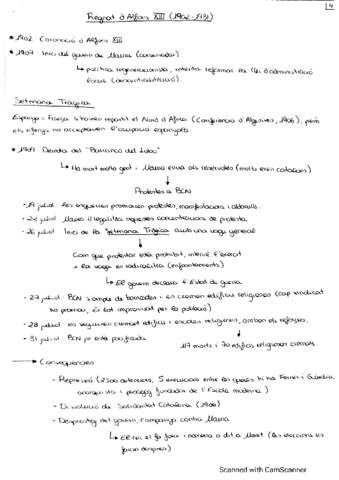 4
Regnat d'Alfons XIII (1902-1931)
* 1902: Coronació d'Alfons XIII
* 1907: Inici del govern de Maura (conservador)
↳ política regeneracionista, intenta reformar la llei d'administració
local (descentralització).
Setmana Tràgica
Espanya i França s'havien repartit el Nord d'Àfrica (Conferència d'Algecires, 1906), però
els rifenys no acceptaven l'ocupació espanyola
* 1909: Derrota del "Barranco del Lobo"
↳ Ha mort molta gent i Maura envia als reservistes (molts eren catalans)
Protestes a BCN
- 19 juliol: Les esquerres promouen protestes, manifestacions i aldarulls.
- 22 juliol: Maura il·legalitza aquestes concentracions de protesta.
- 26 juliol: Inici de la Setmana Tràgica amb una vaga general
Com que protestar està prohibit, intervé l'exèrcit
+ la vaga es radicalitza (enfrontaments)
↳ El govern declara l'Estat de guerra
- 27 juliol: BCN s'omple de barricades i es cremen edificis religiosos (cap sindicat
ho promou, és tot improvisat per la població)
- 28 juliol: es segueixen cremant edificis i escoles religioses, arriben els reforços.
- 31 juliol: BCN ja està pacificada
117 morts i 70 edificis religiosos cremats.
→ Conseqüències
- Repressió (2500 detencions, 5 execucions entre les quals hi ha Ferrer i Guàrdia,
anarquista i pedagog fundador de l'Escola moderna)
- Dissolució de Solidaritat Catalana (1906)
- Desprestigi del govern, campanya contra Maura
↳ El rei el fa fora i nomena a dit a Moret (les eleccions es
faran després)
Scanned with CamScanner